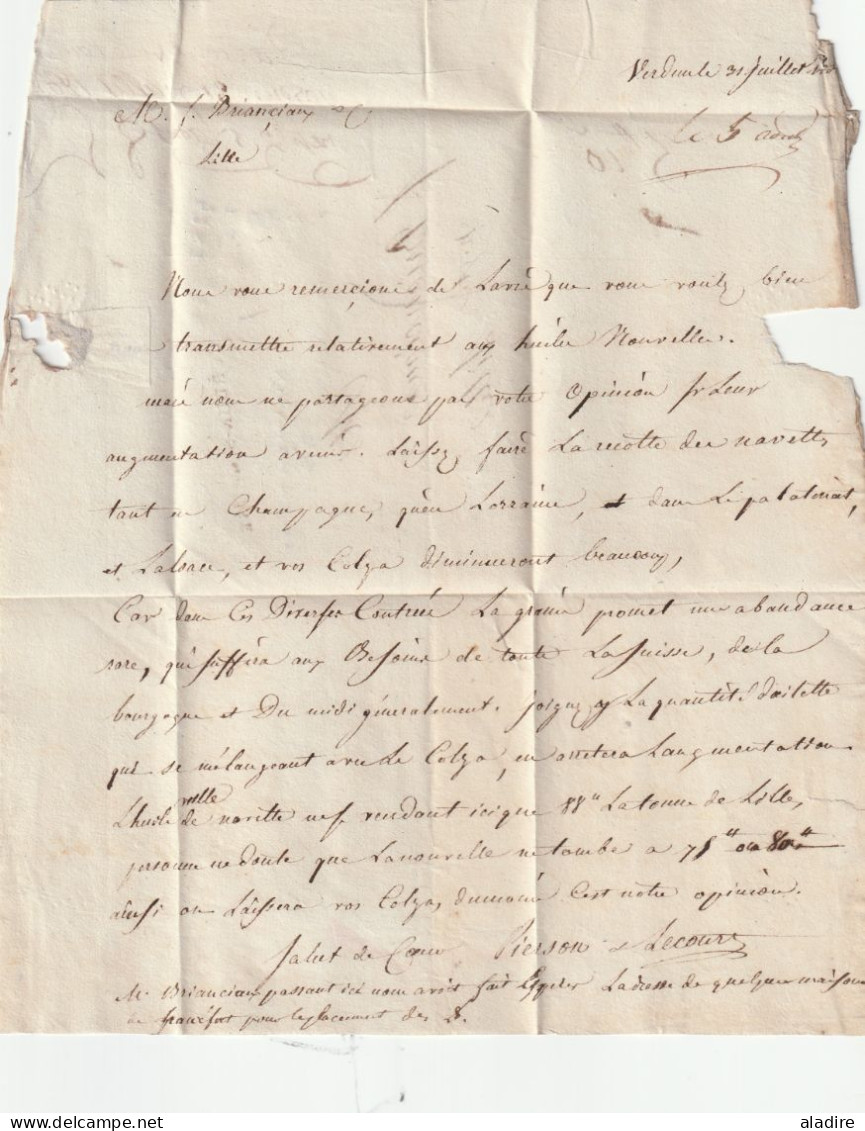 Verdun le 31 Juillet
M. f. Briançiaux & C
le 5 
Lille
Nous vous remerçions de Lavis que vous voulez bien
transmettre relativement aux huiles Nouvelles.
mais nous ne partageons pas votre Opinion sr Leur
augmentation avenir. Laissez faire La recolte des navettes
tant en Champagne, qu'en Lorraine, et dans Le palatinat,
et Lalsace, et vos Colza diminueront beaucoup,
Car dans Ces Diverses Contrées La graine promet une abandance
rare, qui suffira aux Besoins de toute La Suisse, de la
bourgogne et Du midi généralement. Joignez y La quantité d'oeilette
qui se mélangeant avec Le Colza, en arretera Laugmentation
L'huile de navette ne se vendant ici que 88" La tonne de Lille,
vielle
personne ne doute que La nouvelle ne tombe a 75" ou 80"
ainsi on Laissera vos Colzas dumoins C'est notre opinion.
Salut de Coeur Pierson & Lecourt
M. Briançiaux passant ici nous avoit fait Espérer Ladresse de quelques maisons
de francfort pour le placement des 8.
aladire